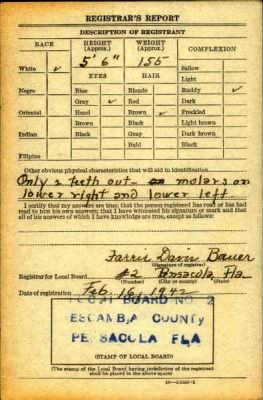 REGISTRAR'S REPORT
DESCRIPTION OF REGISTRANT
RACE HEIGHT (Approx.) WEIGHT (Approx.) COMPLEXION
5' 6" 155
White ✓ Sallow
EYES HAIR Light
Negro Blue Blonde Ruddy ✓
Gray ✓ Red Dark
Oriental Hazel Brown ✓ Freckled
Brown Black Light brown
Indian Black Gray Dark brown
Bald Black
Filipino
Other obvious physical characteristics that will aid in identification
Only 2 teeth out molars on
lower right and lower left
I certify that my answers are true; that the person registered has read or has had
read to him his own answers; that I have witnessed his signature or mark and that
all of his answers of which I have knowledge are true, except as follows:
Farris Davis Bauer
(Signature of registrar)
Registrar for Local Board #2 Pensacola, Fla
(Number) (City or county) (State)
Date of registration Feb. 16, 1942
LOCAL BOARD NO 2
ESCAMBIA COUNTY
PENSACOLA FLA
(STAMP OF LOCAL BOARD)
(The stamp of the Local Board having jurisdiction of the registrant
shall be placed in the above space)